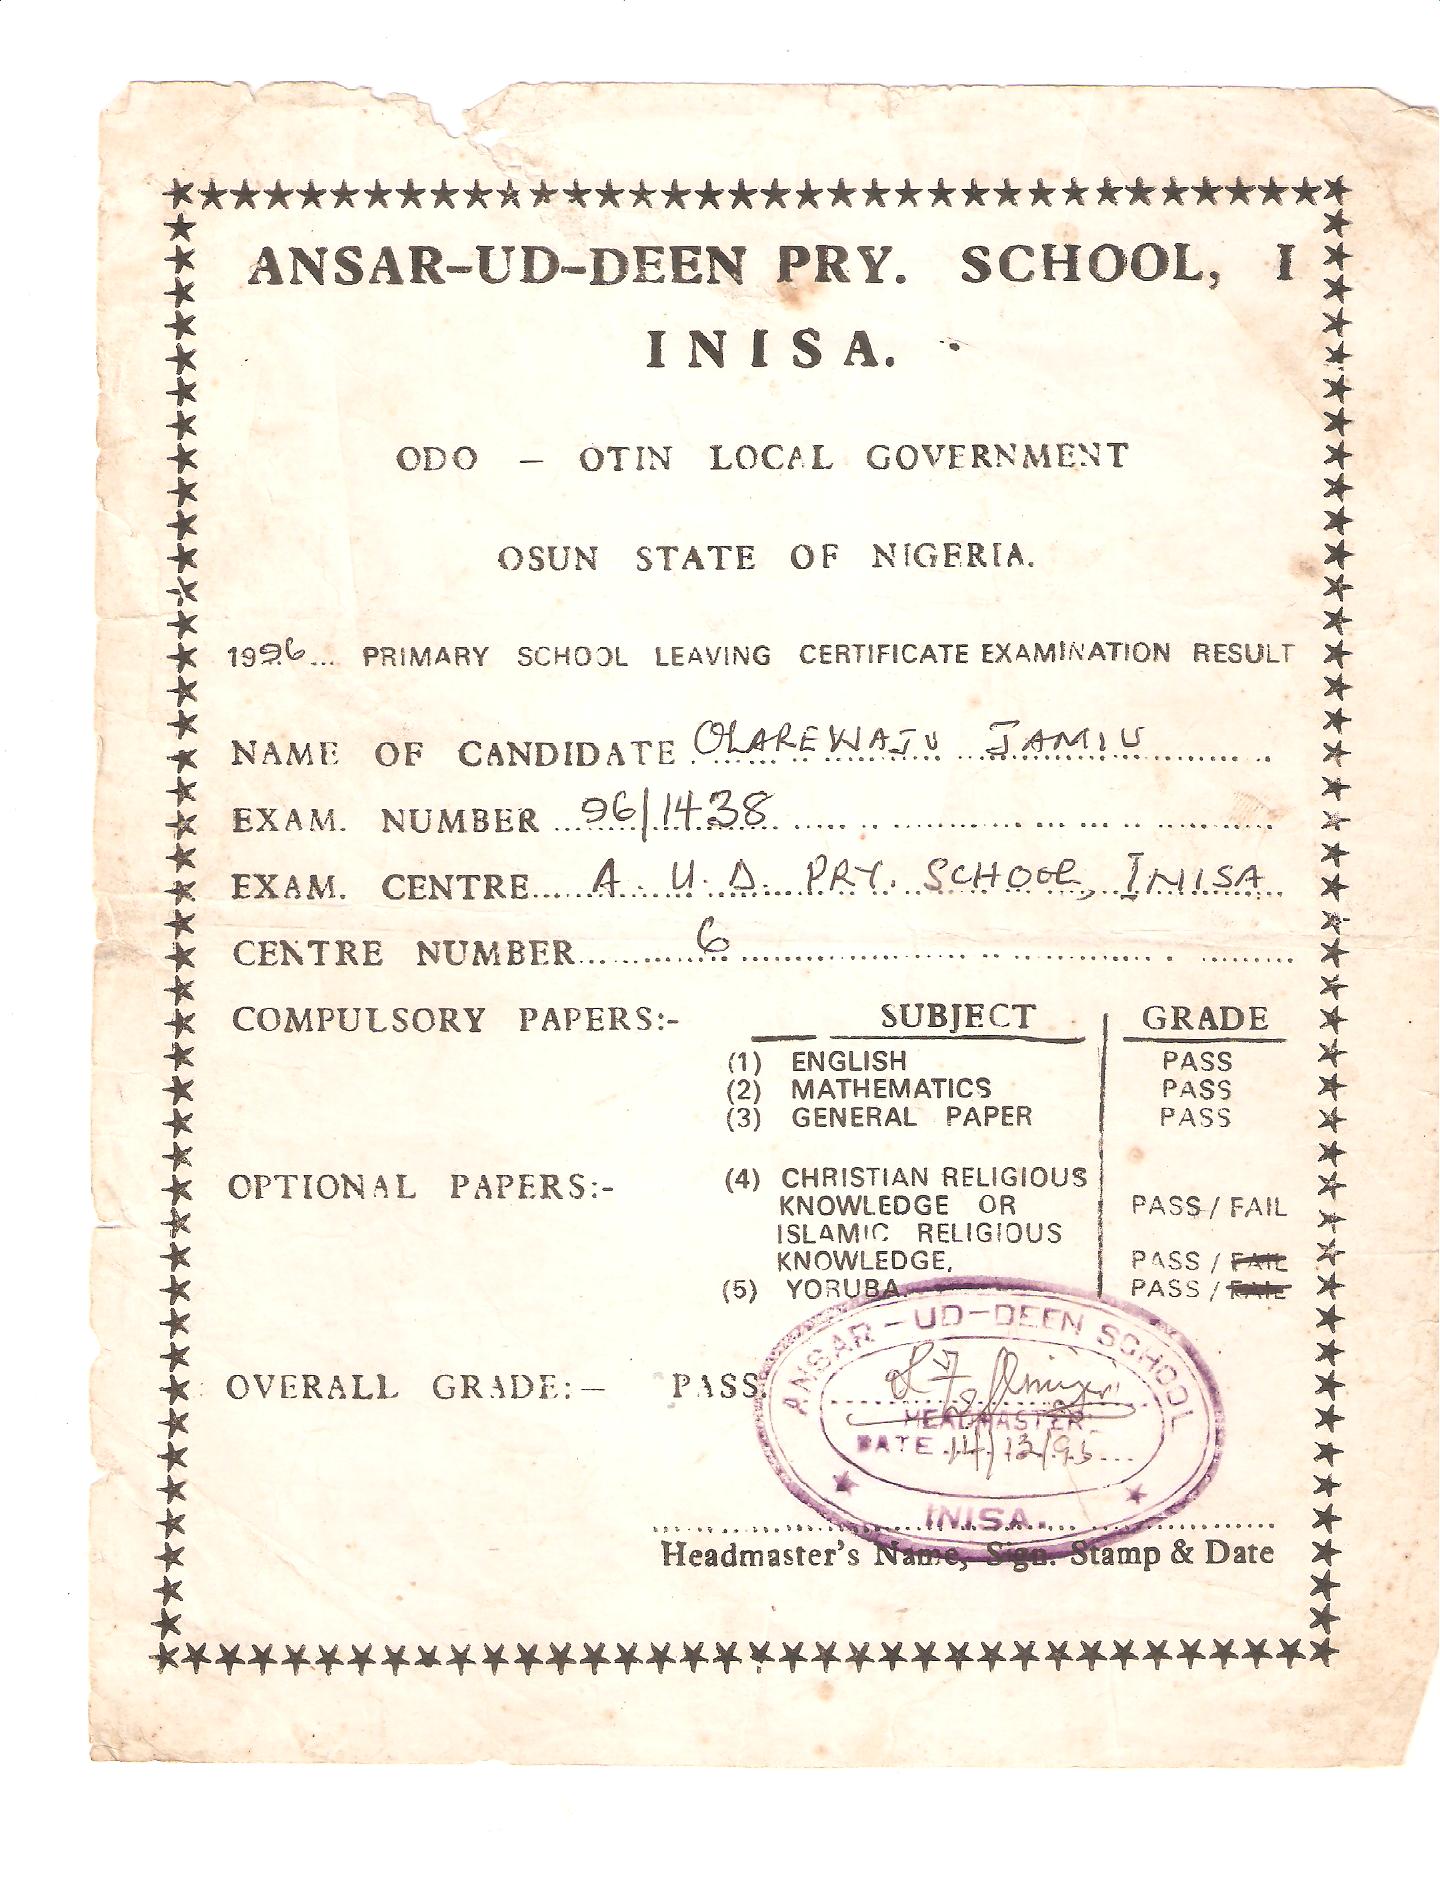 ANSAR-UD-DEEN PRY. SCHOOL, I
INISA.
ODO - OTIN LOCAL GOVERNMENT
OSUN STATE OF NIGERIA.
1996... PRIMARY SCHOOL LEAVING CERTIFICATE EXAMINATION RESULT
NAME OF CANDIDATE OLAREWAJU JAMIU
EXAM. NUMBER 96/1438
EXAM. CENTRE A. U. D. PRY. SCHOOL, INISA
CENTRE NUMBER 6
COMPULSORY PAPERS:- SUBJECT GRADE
(1) ENGLISH PASS
(2) MATHEMATICS PASS
(3) GENERAL PAPER PASS
OPTIONAL PAPERS:- (4) CHRISTIAN RELIGIOUS
KNOWLEDGE OR PASS / FAIL
ISLAMIC RELIGIOUS
KNOWLEDGE, PASS / FAIL
(5) YORUBA PASS / FAIL
ANSAR-UD-DEEN SCHOOL
OVERALL GRADE:- PASS
HEADMASTER
DATE
INISA.
Headmaster's Name, Sign. Stamp & Date